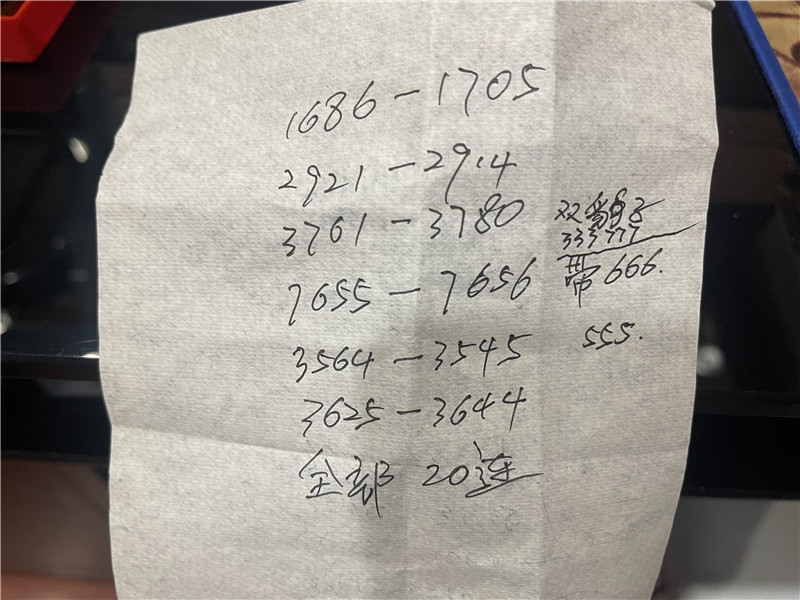 1686-1705
2921-2914
3761-3780
双豹子
333777
7655-7656
带666.
3564-3545
555.
3625-3644
全部 20连